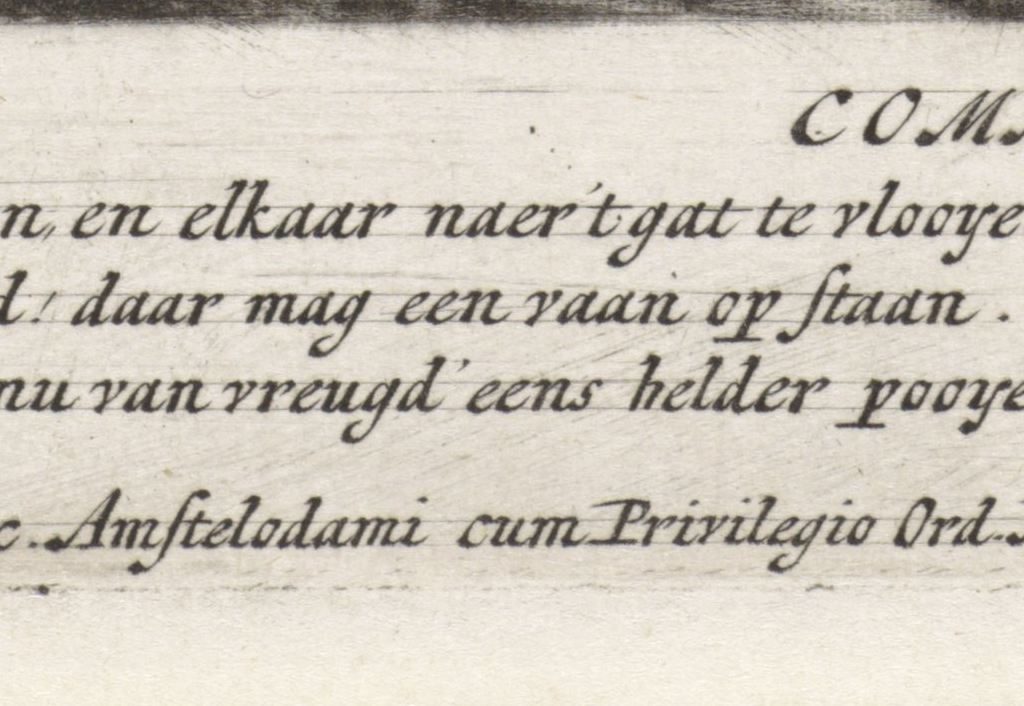 COM
n, en elkaar naer 't gat te vlooye
d! daar mag een vaan op ſtaan.
nu van vreugd' eens helder pooye
c. Amſtelodami cum Privilegio Ord.